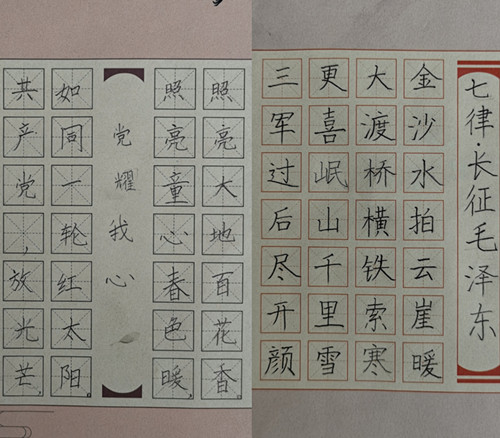 共产党，放光芒，
如同一轮红太阳。
党耀我心
照亮童心春色暖，
照亮大地百花香。
七律·长征毛泽东
金沙水拍云崖暖
大渡桥横铁索寒
更喜岷山千里雪
三军过后尽开颜